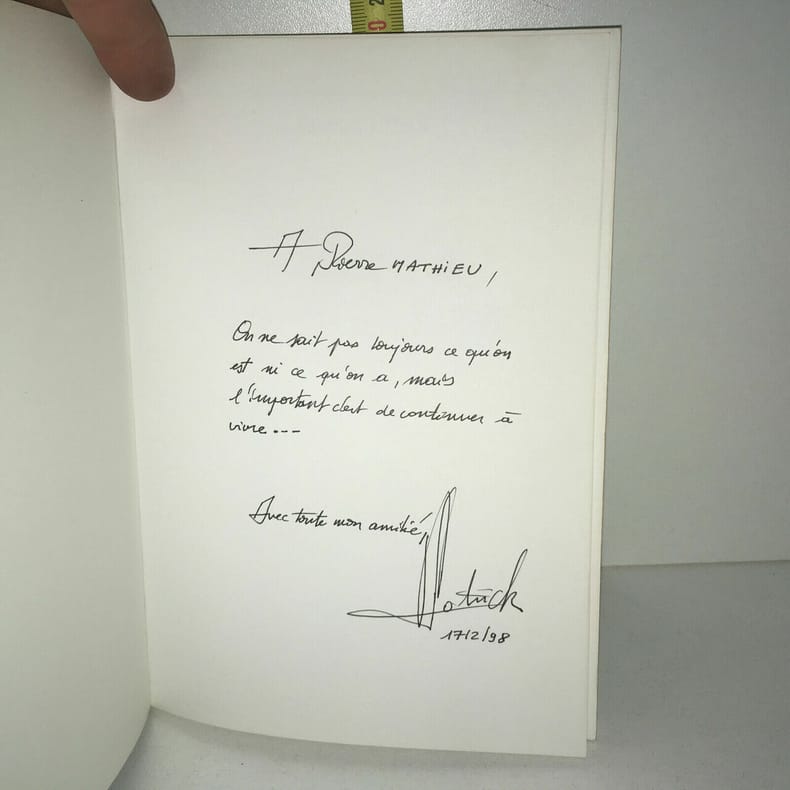 A Pierre MATHIEU,
On ne sait pas toujours ce qu'on
est ni ce qu'on a, mais
l'important c'est de continuer à
vivre ---
Avec toute mon amitié,
Patrick
17/2/98